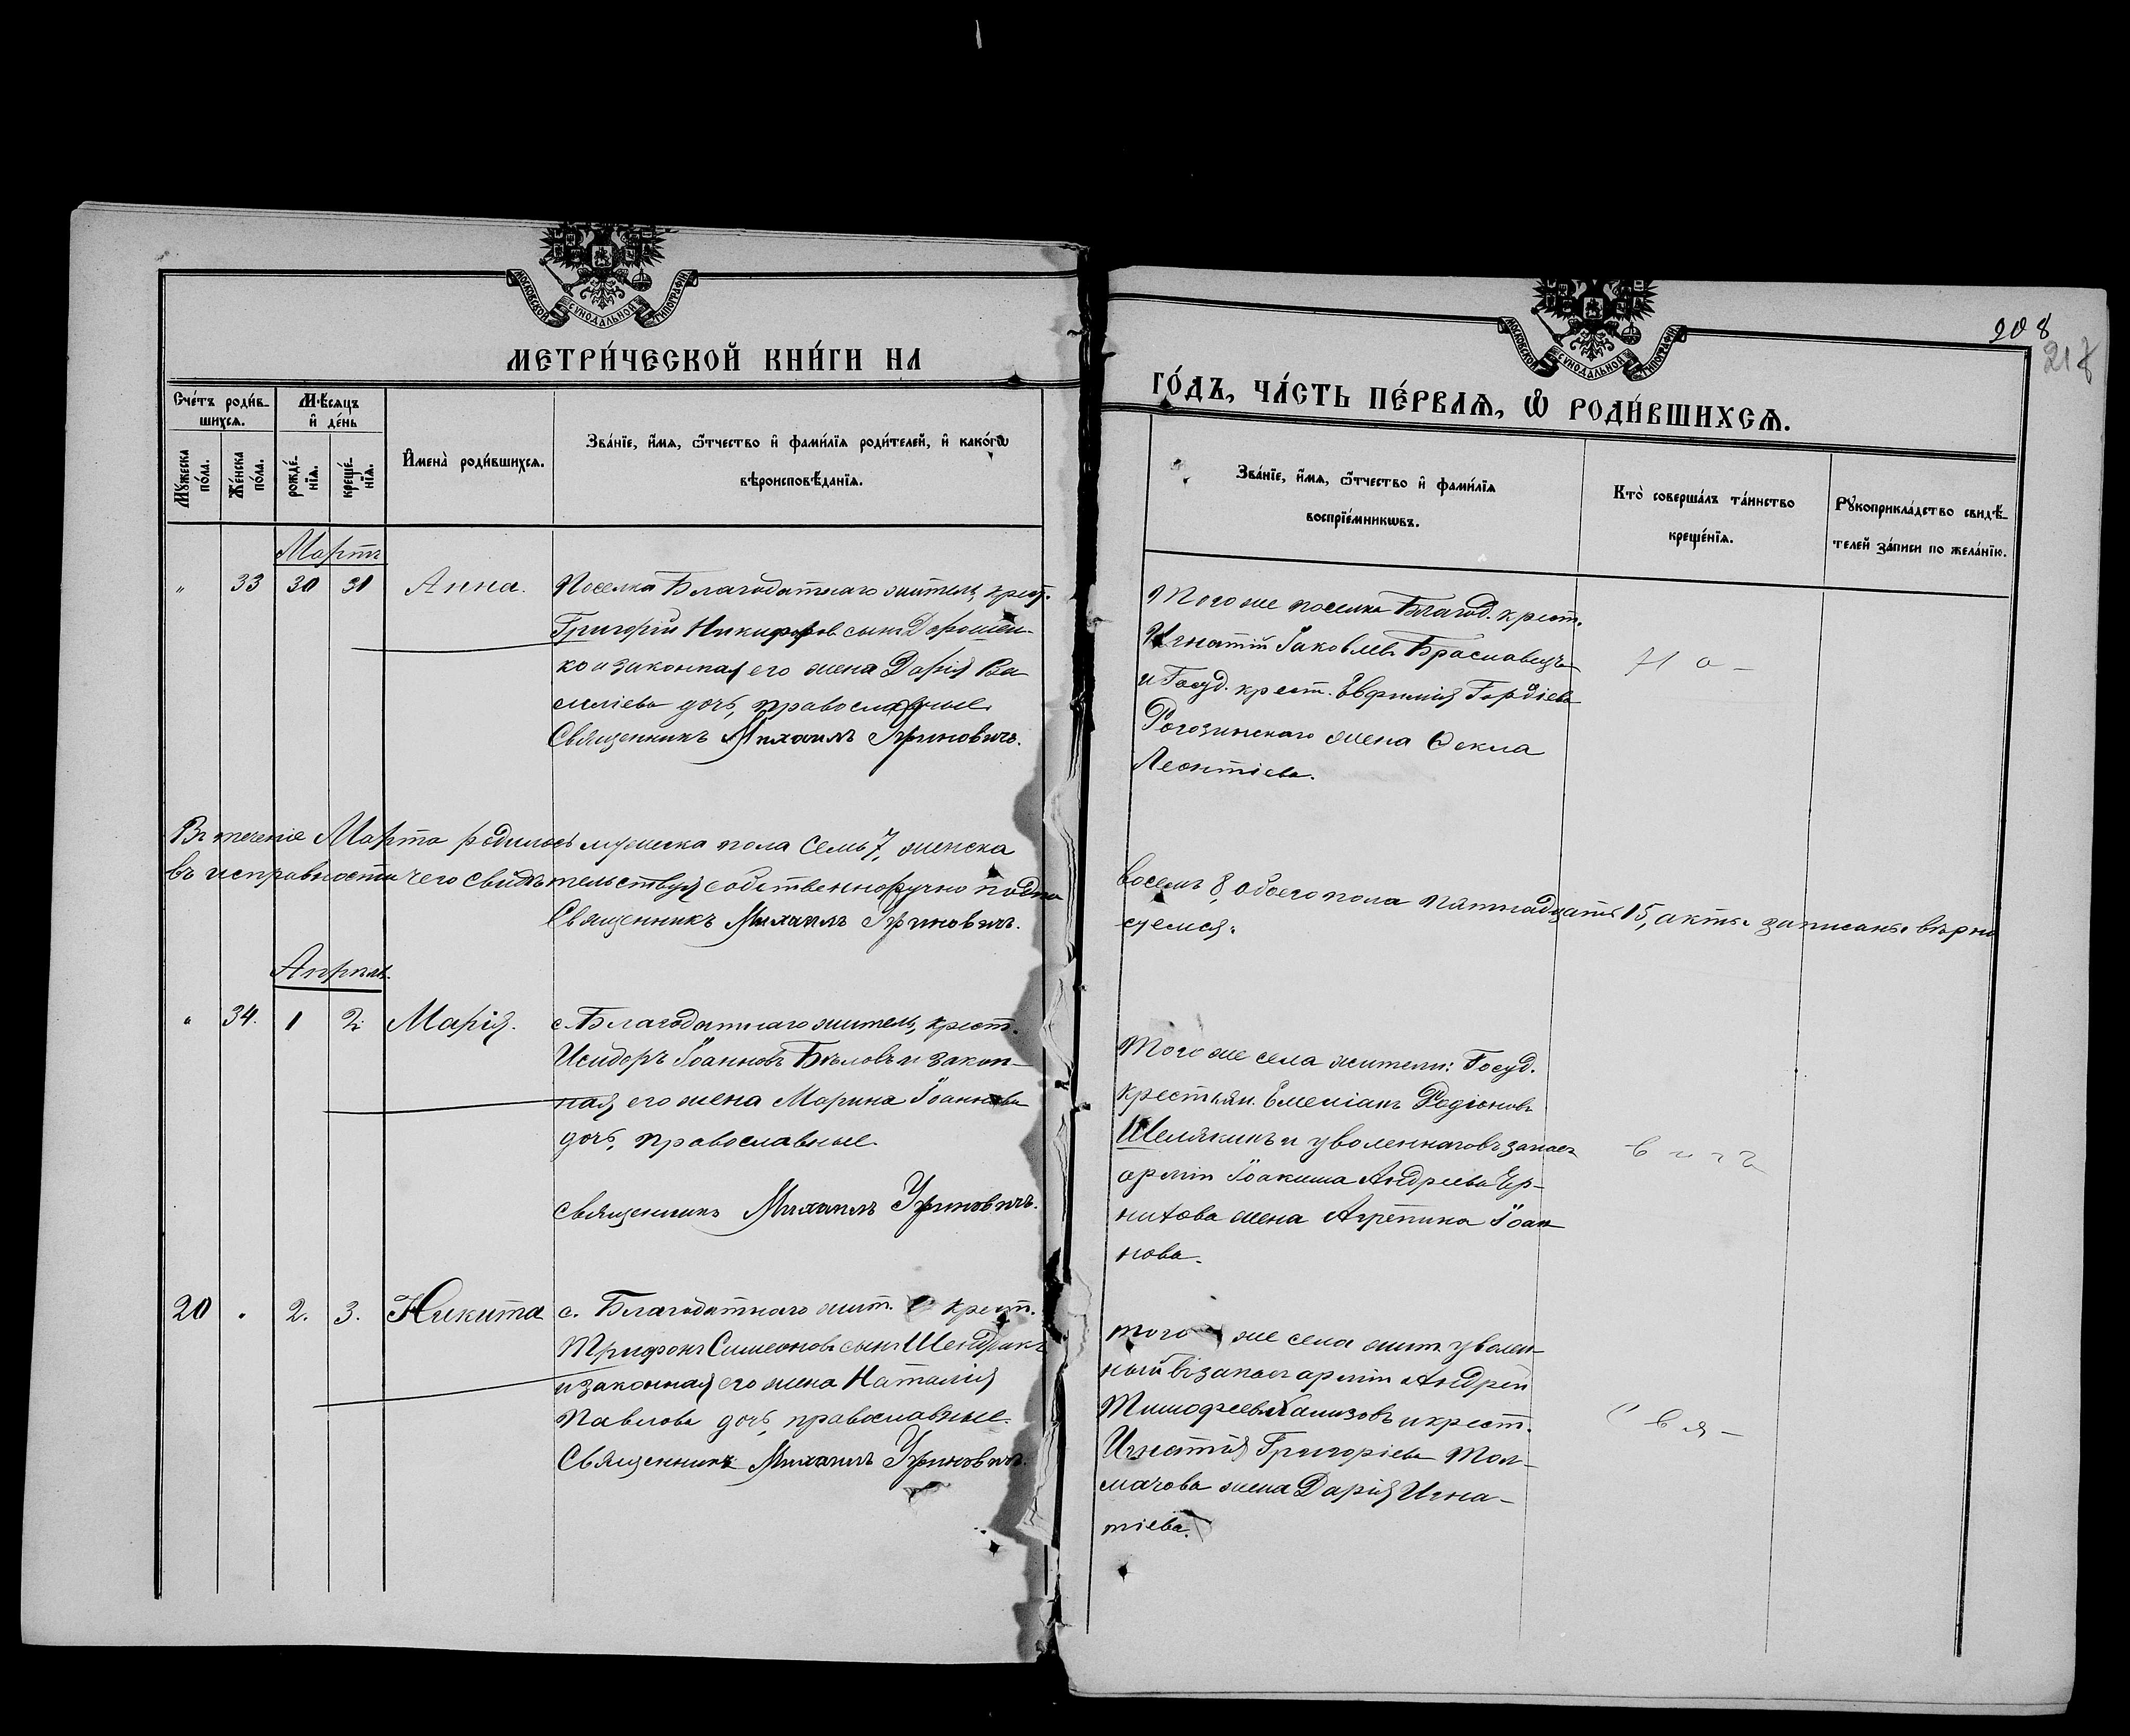 МОСКОВСКОЙ СѴНОДАЛЬНОЙ ТИПОГРАФІИ
МЕТРИ́ЧЕСКОЙ КНИ́ГИ НА
Сче́тъ роди́в-
шихся.
Мѣ́сяцъ
и҆ де́нь
Мꙋ́жеска
по́ла.
Же́нска
по́ла.
рожде́-
нїя.
креще́-
нїя.
И҆мена̀ роди́вшихся.
Зва́нїе, и҆́мя, ѻ҆́тчество и҆ фами́лїя роди́телей, и҆ како́гѡ
вѣроисповѣ́данїя.
Мартъ
" 33 30 31 Анна.
Поселка Благодатнаго житель, крест.
Григорій Никифоров сынъ Дорошен-
ко и законная его жена Дарія Ва
силіева дочь, православные.
Священникъ Михаилъ
Въ теченіе Марта родилось мужеска пола семь 7, женска
въ исправности чего свидѣтельствуя собственноручно подпи
Священникъ Михаилъ
Апрѣль.
" 34. 1 2. Марія.
с. Благодатнаго житель, крест.
Исидоръ Іоанновъ Бѣловъ и закон-
ная его жена Марина Іоаннова
дочь, православные.
Священникъ Михаилъ
20 " 2. 3. Никита
с. Благодатнаго жит. крест.
Трифонъ Симеоновъ сынъ Шендрикъ
и законная его жена Наталія
Павлова дочь, православные.
Священникъ Михаилъ
208
218
МОСКОВСКОЙ СѴНОДАЛЬНОЙ ТИПОГРАФІИ
ГО́ДЪ, ЧА́СТЬ ПЕ́РВАЯ, Ѽ РОДИ́ВШИХСЯ.
Зва́нїе, и҆́мя, ѻ҆́тчество и҆ фами́лїя
воспрїе́мникѡвъ.
Кто̀ соверша́лъ та́инство
креще́нїя.
Рꙋкоприкла́дство свидѣ́-
телей за́писи по жела́нїю.
Того же поселка Благод. крест.
Игнатій Іаковлев Браславецъ
и Госуд. крест. Евфимія Гордіева
Рогозинскаго жена Ѳекла
Леонтіева.
восемь 8, обоего пола пятнадцать 15, акты записаны вѣрно
суемся:
Того же села жители: Госуд.
крестьян. Емеліанъ Родіоновъ
Шелякинъ и уволеннаго въ запасъ
арміи Іоакима Андреева
жена Агрепина Іоан
нова.
того же села жит. уволен-
ный въ запасъ арміи Андрей
Тимофеевъ и крест.
Игнатія Григоріева Тол-
мачова жена Дарія Игна-
тіева.